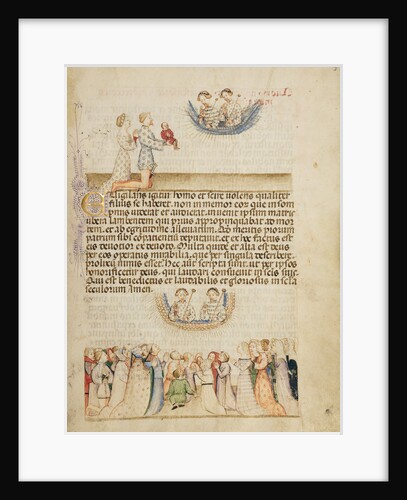 Vigilans igitur homo et scire volens qualiter
filius se haberet. non inmemor eor que in som
pnis viderat et audierat. invenit ipsum matris
ubera lambentem qui prius appropinquabat ad mor
tem. et ab egritudine alleviatum. Ad meritis piorum
patrum sibi compatientium reputavit. et ex hoc factus est
eis devotior et devoto. Multa quire et alia est deus
per eos operatus mirabilia. que per singula describere
prolixum nimis esset. Hec aut scripta sunt. ut per ipsos
honorificetur deus. qui laudari consuevit in scis suis.
Qui est benedictus et laudabilis et gloriosus in secula
seculorum Amen.